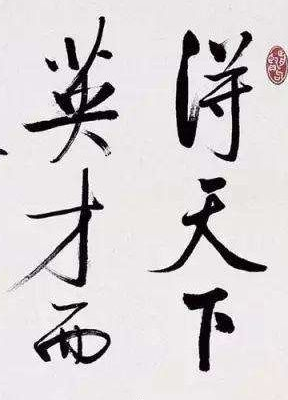 得天下
英才而